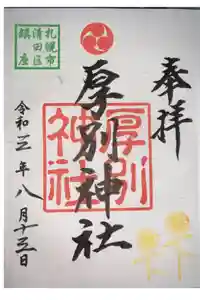 奉拝
札幌市
清田区
鎮座
厚別神社
厚別
神社
令和三年八月十三日